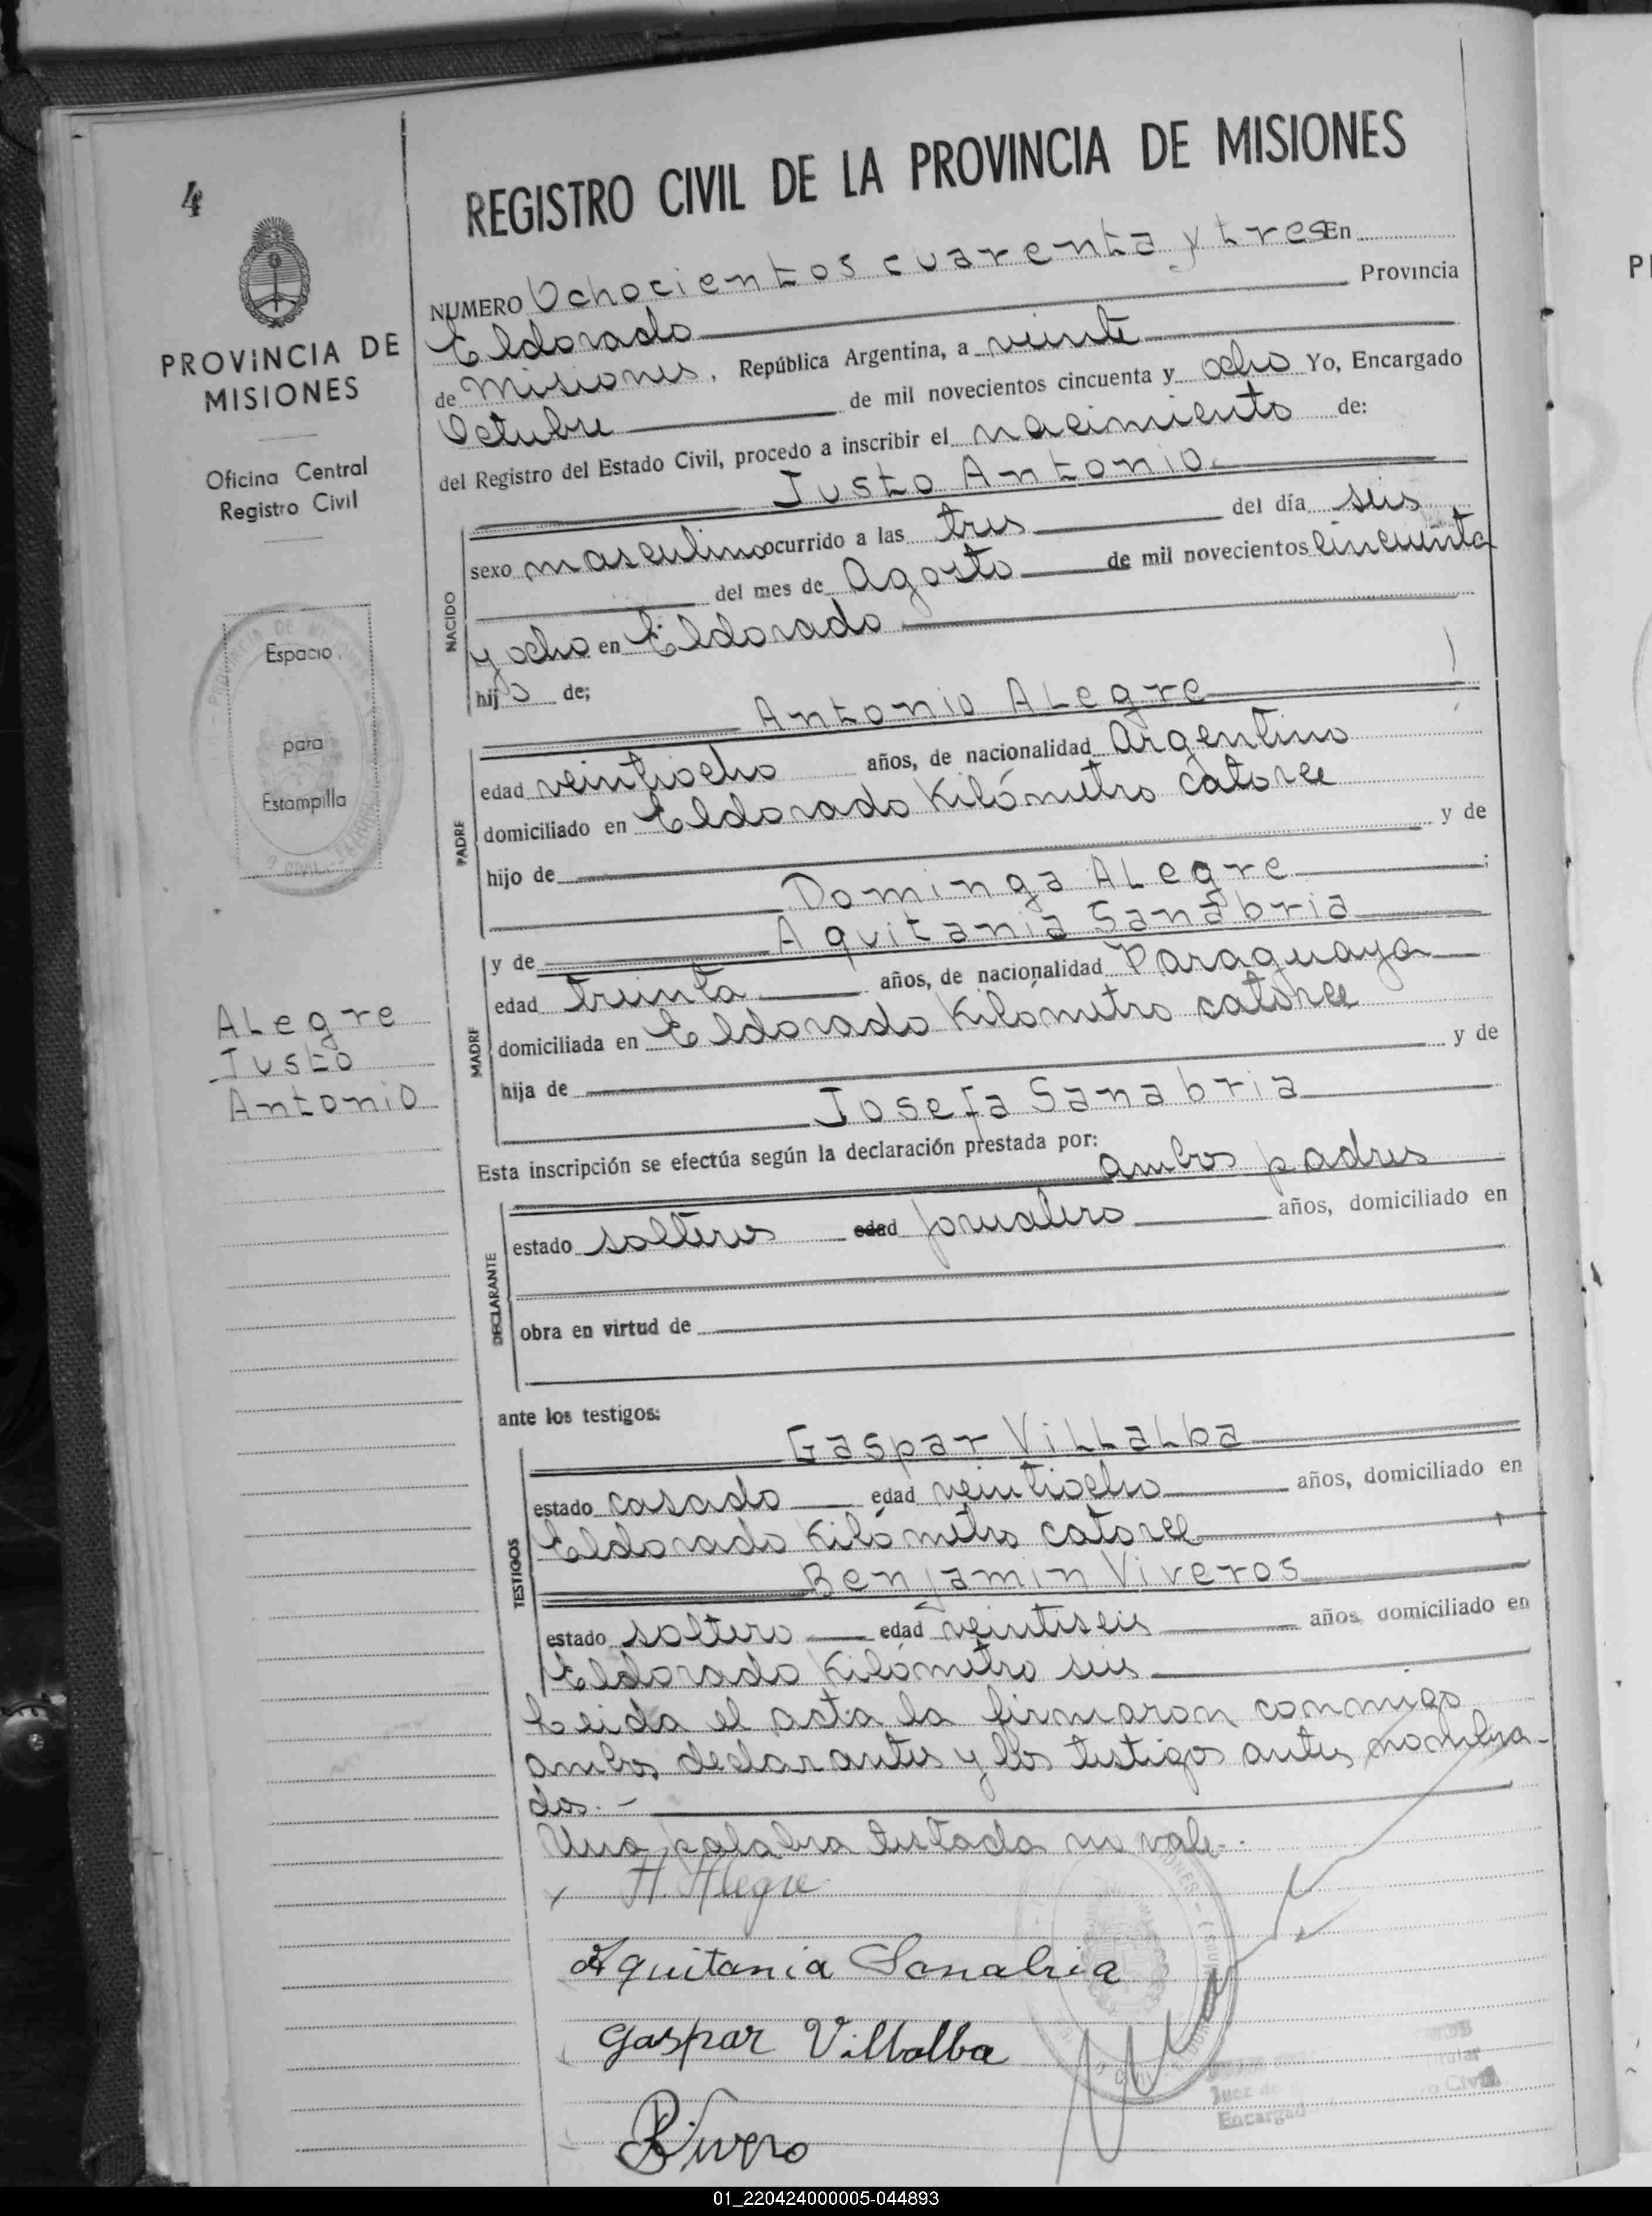 4
PROVINCIA DE
MISIONES
Oficina Central
Registro Civil
Espacio
para
Estampilla
ALegre
Justo
Antonio
REGISTRO CIVIL DE LA PROVINCIA DE MISIONES
NUMERO Ochocientos cuarenta y tres En
Eldorado Provincia
de Misiones, República Argentina, a veinte
Octubre de mil novecientos cincuenta y ocho Yo, Encargado
del Registro del Estado Civil, procedo a inscribir el nacimiento de:
Justo Antonio.
NACIDO
sexo masculino ocurrido a las tres del día seis
del mes de Agosto de mil novecientos cincuenta
y ocho en Eldorado
hijo de;
Antonio ALegre
PADRE
edad veintiocho años, de nacionalidad Argentino
domiciliado en Eldorado Kilómetro catorce
hijo de y de
Dominga ALegre ;
y de Aquitania Sanabria
MADRE
edad treinta años, de nacionalidad Paraguaya
domiciliada en Eldorado Kilómetro catorce
hija de y de
Josefa Sanabria
Esta inscripción se efectúa según la declaración prestada por:
ambos padres
DECLARANTE
estado solteros edad jornalero años, domiciliado en
obra en virtud de
ante los testigos:
Gaspar ViLLaLba
TESTIGOS
estado casado edad veintiocho años, domiciliado en
Eldorado Kilómetro catorce
Benjamin Viveros
estado soltero edad veintiseis años, domiciliado en
Eldorado Kilómetro seis
Leida el acta la firmaron conmigo
ambos declarantes y los testigos antes nombra-
dos.-
Una palabra testada no vale.-
A. Alegre
Aquitania Sanabria
Gaspar Villalba
BVivero
Juez de
Encargad
01_220424000005-044893